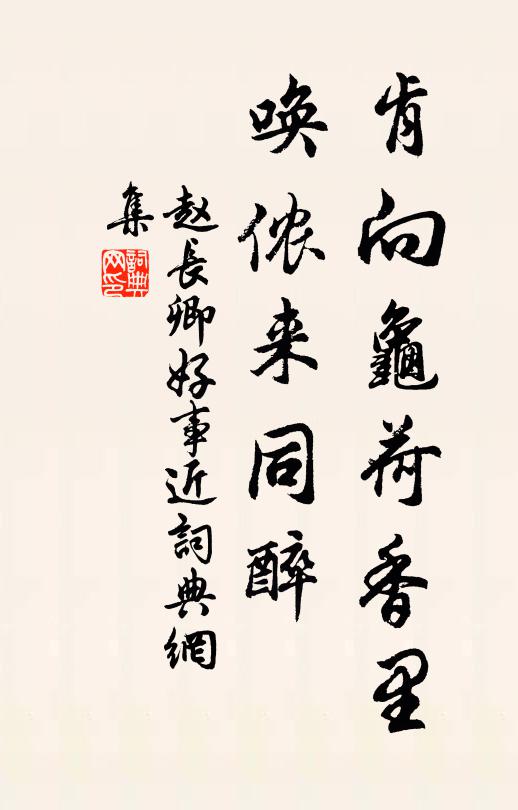 肯向龜荷香里
唤侬来同醉
赵長卿好事近詞典網
集
詞典
网印